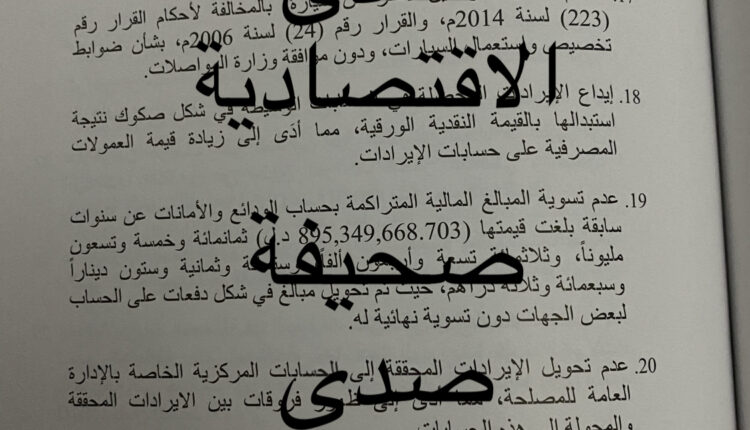 بالمخالفة لأحكام القرار رقم
(223) لسنة 2014م، والقرار رقم (24) لسنة 2006م، بشأن ضوابط
تخصيص واستعمال السيارات، ودون موافقة وزارة المواصلات.
الاقتصادية
18. إيداع الإيرادات في شكل صكوك نتيجة
استبدالها بالقيمة النقدية الورقية، مما أدى إلى زيادة قيمة العمولات
المصرفية على حسابات الإيرادات.
19. عدم تسوية المبالغ المالية المتراكمة بحساب الودائع والأمانات عن سنوات
سابقة بلغت قيمتها (895,349,668.703 د.ل) ثمانمائة وخمسة وتسعون
صحيفة
مليوناً، وثلاثمائة تسعة وأربعون ألفاً وستمائة وثمانية وستون ديناراً
وسبعمائة وثلاثة دراهم، حيث تم تحويل مبالغ في شكل دفعات على الحساب
لبعض الجهات دون تسوية نهائية له.
20. عدم تحويل الإيرادات المحققة إلى الحسابات المركزية الخاصة بالإدارة
صدى
العامة للمصلحة، فروقات بين الايرادات المحققة
والمحولة إلى هذه الحسابات.